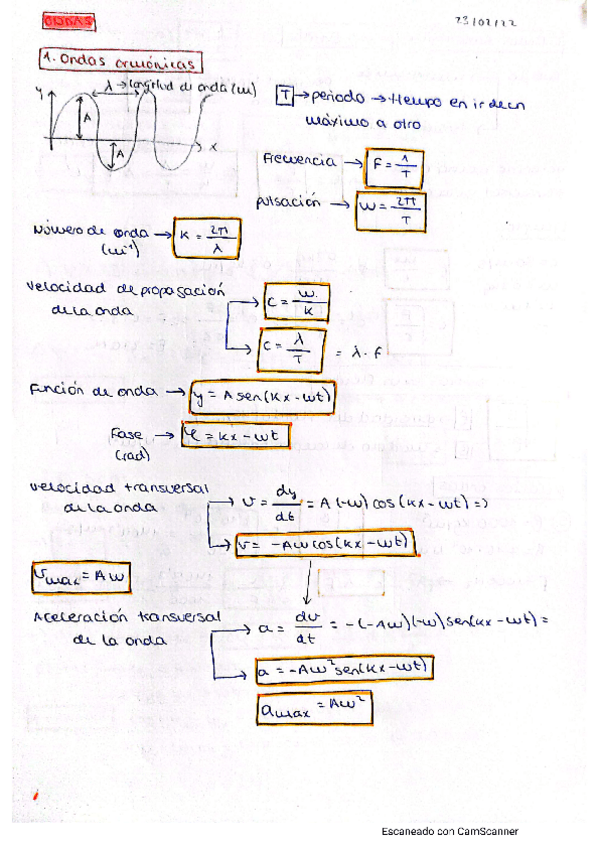 ONDAS
23/02/22
1. Ondas armónicas
y
λ → longitud de onda (m)
A
A
x
T → periodo → tiempo en ir de un
máximo a otro
Frecuencia → F = 1/T
pulsación → W = 2π/T
Número de onda → K = 2π/λ
(m⁻¹)
Velocidad de propagación
de la onda
C = W/K
C = λ/T = λ · F
Función de onda → y = A sen(Kx - wt)
Fase → φ = Kx - wt
(rad)
Velocidad transversal
de la onda
v = dy/dt = A (-w) cos(Kx - wt) =>
v = -Aw cos(Kx - wt)
Vmax = Aw
Aceleración transversal
de la onda
a = dv/dt = -(-Aw)(-w) sen(Kx - wt) =
a = -Aw² sen(Kx - wt)
amax = Aw²
Escaneado con CamScanner